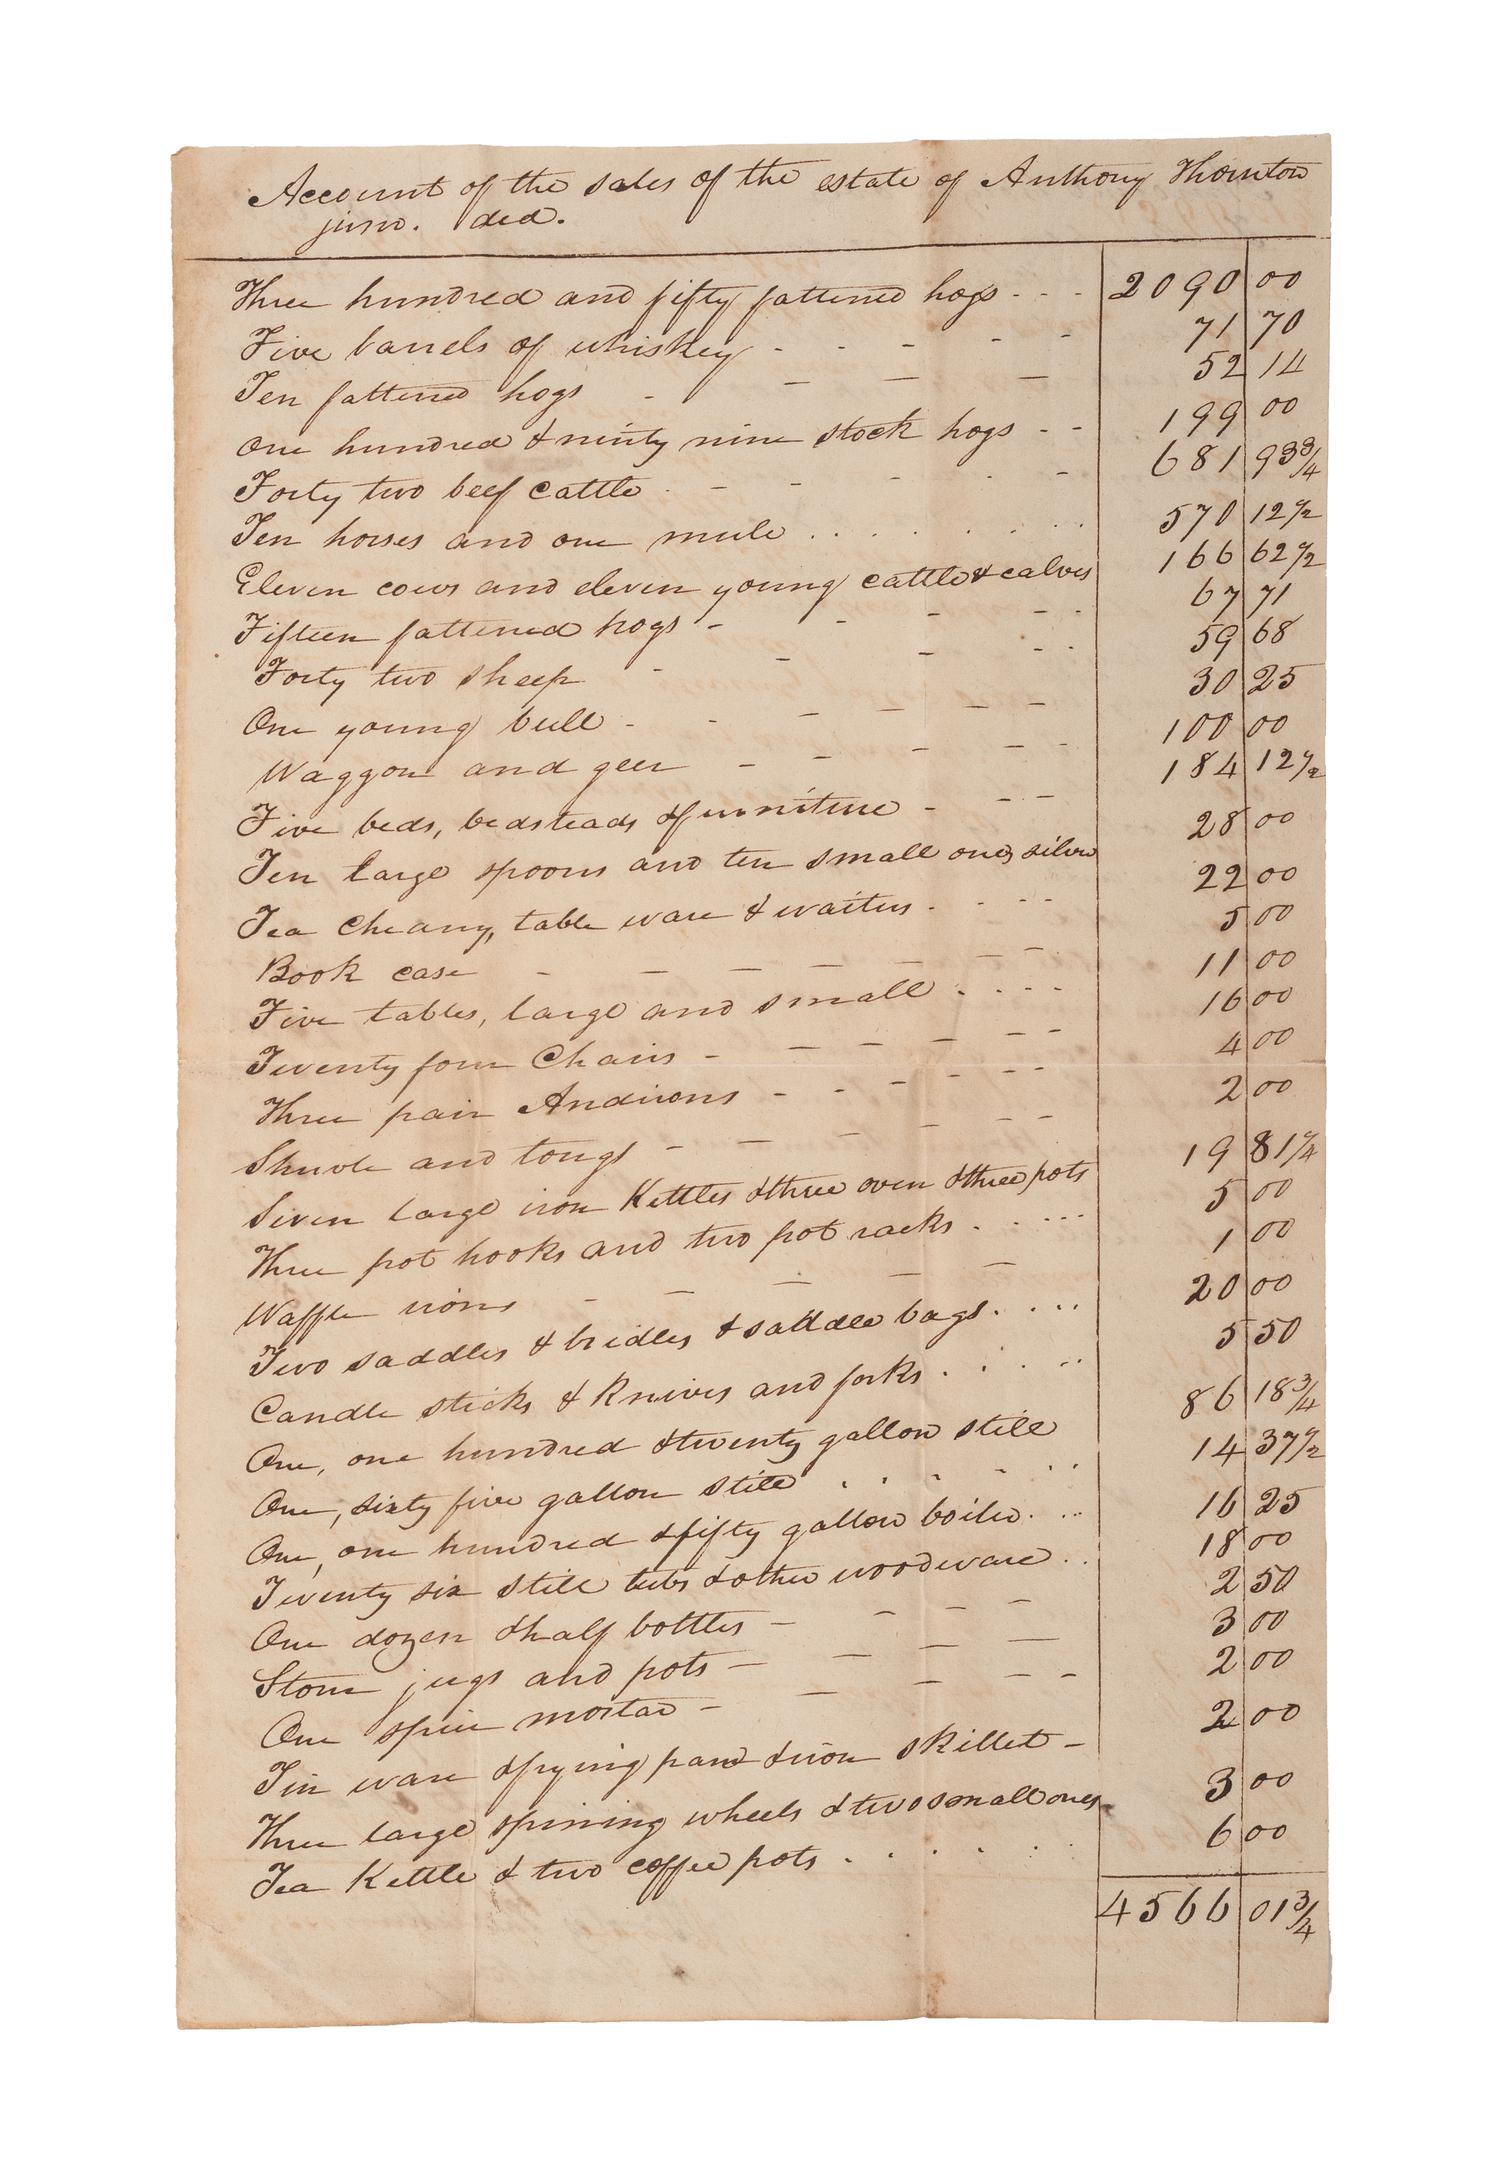 Account of the sales of the estate of Anthony Thornton
junr. decd.
Three hundred and fifty fattened hogs - - - 2090 00
Five barrels of whiskey - - - - - 71 70
Ten fattened hogs - - - - 52 14
One hundred & ninty nine stock hogs - - 199 00
Forty two beef cattle - - - - - 681 93 3/4
Ten horses and one mule . . . . . . . 570 12 1/2
Eleven cows and eleven young cattle & calves 166 62 1/2
Fifteen fattened hogs - - - - - 67 71
Forty two sheep - - - - - 59 68
One young bull - - - - - - 30 25
Waggon and geer - - - - - 100 00
Five beds, bedsteads & furniture - - - 184 12 1/2
Ten large spoons and ten small ones silver 28 00
Tea cheany, table ware & waiters . - - - 22 00
Book case - - - - - - - 5 00
Five tables, large and small . . . . 11 00
Twenty four Chairs - - - - - - 16 00
Three pair Andirons - - - - - - 4 00
Shuvle and tongs - - - - - - 2 00
Seven large iron Kettles & three oven & three pots 19 81 1/4
Three pot hooks and two pot racks . . . . . 5 00
Waffle irons - - - - - 1 00
Two saddles & bridles & saddle bags . . . . 20 00
Candle sticks & Knives and forks . . . . . 5 50
One, one hundred & twenty gallon still 86 18 3/4
One, sixty five gallon still . . . . . . 14 37 1/2
One, one hundred & fifty gallon boiler . . . 16 25
Twenty six still tubs & other woodware . . 18 00
One dozen & half bottles - - - - 2 50
Stone jugs and pots - - - - 3 00
One spice mortar - - - - - 2 00
Tin ware & frying pan & iron skillet - 2 00
Three large spinning wheels & two small ones 3 00
Tea Kettle & two coffee pots . . . . . . 6 00
4566 01 3/4